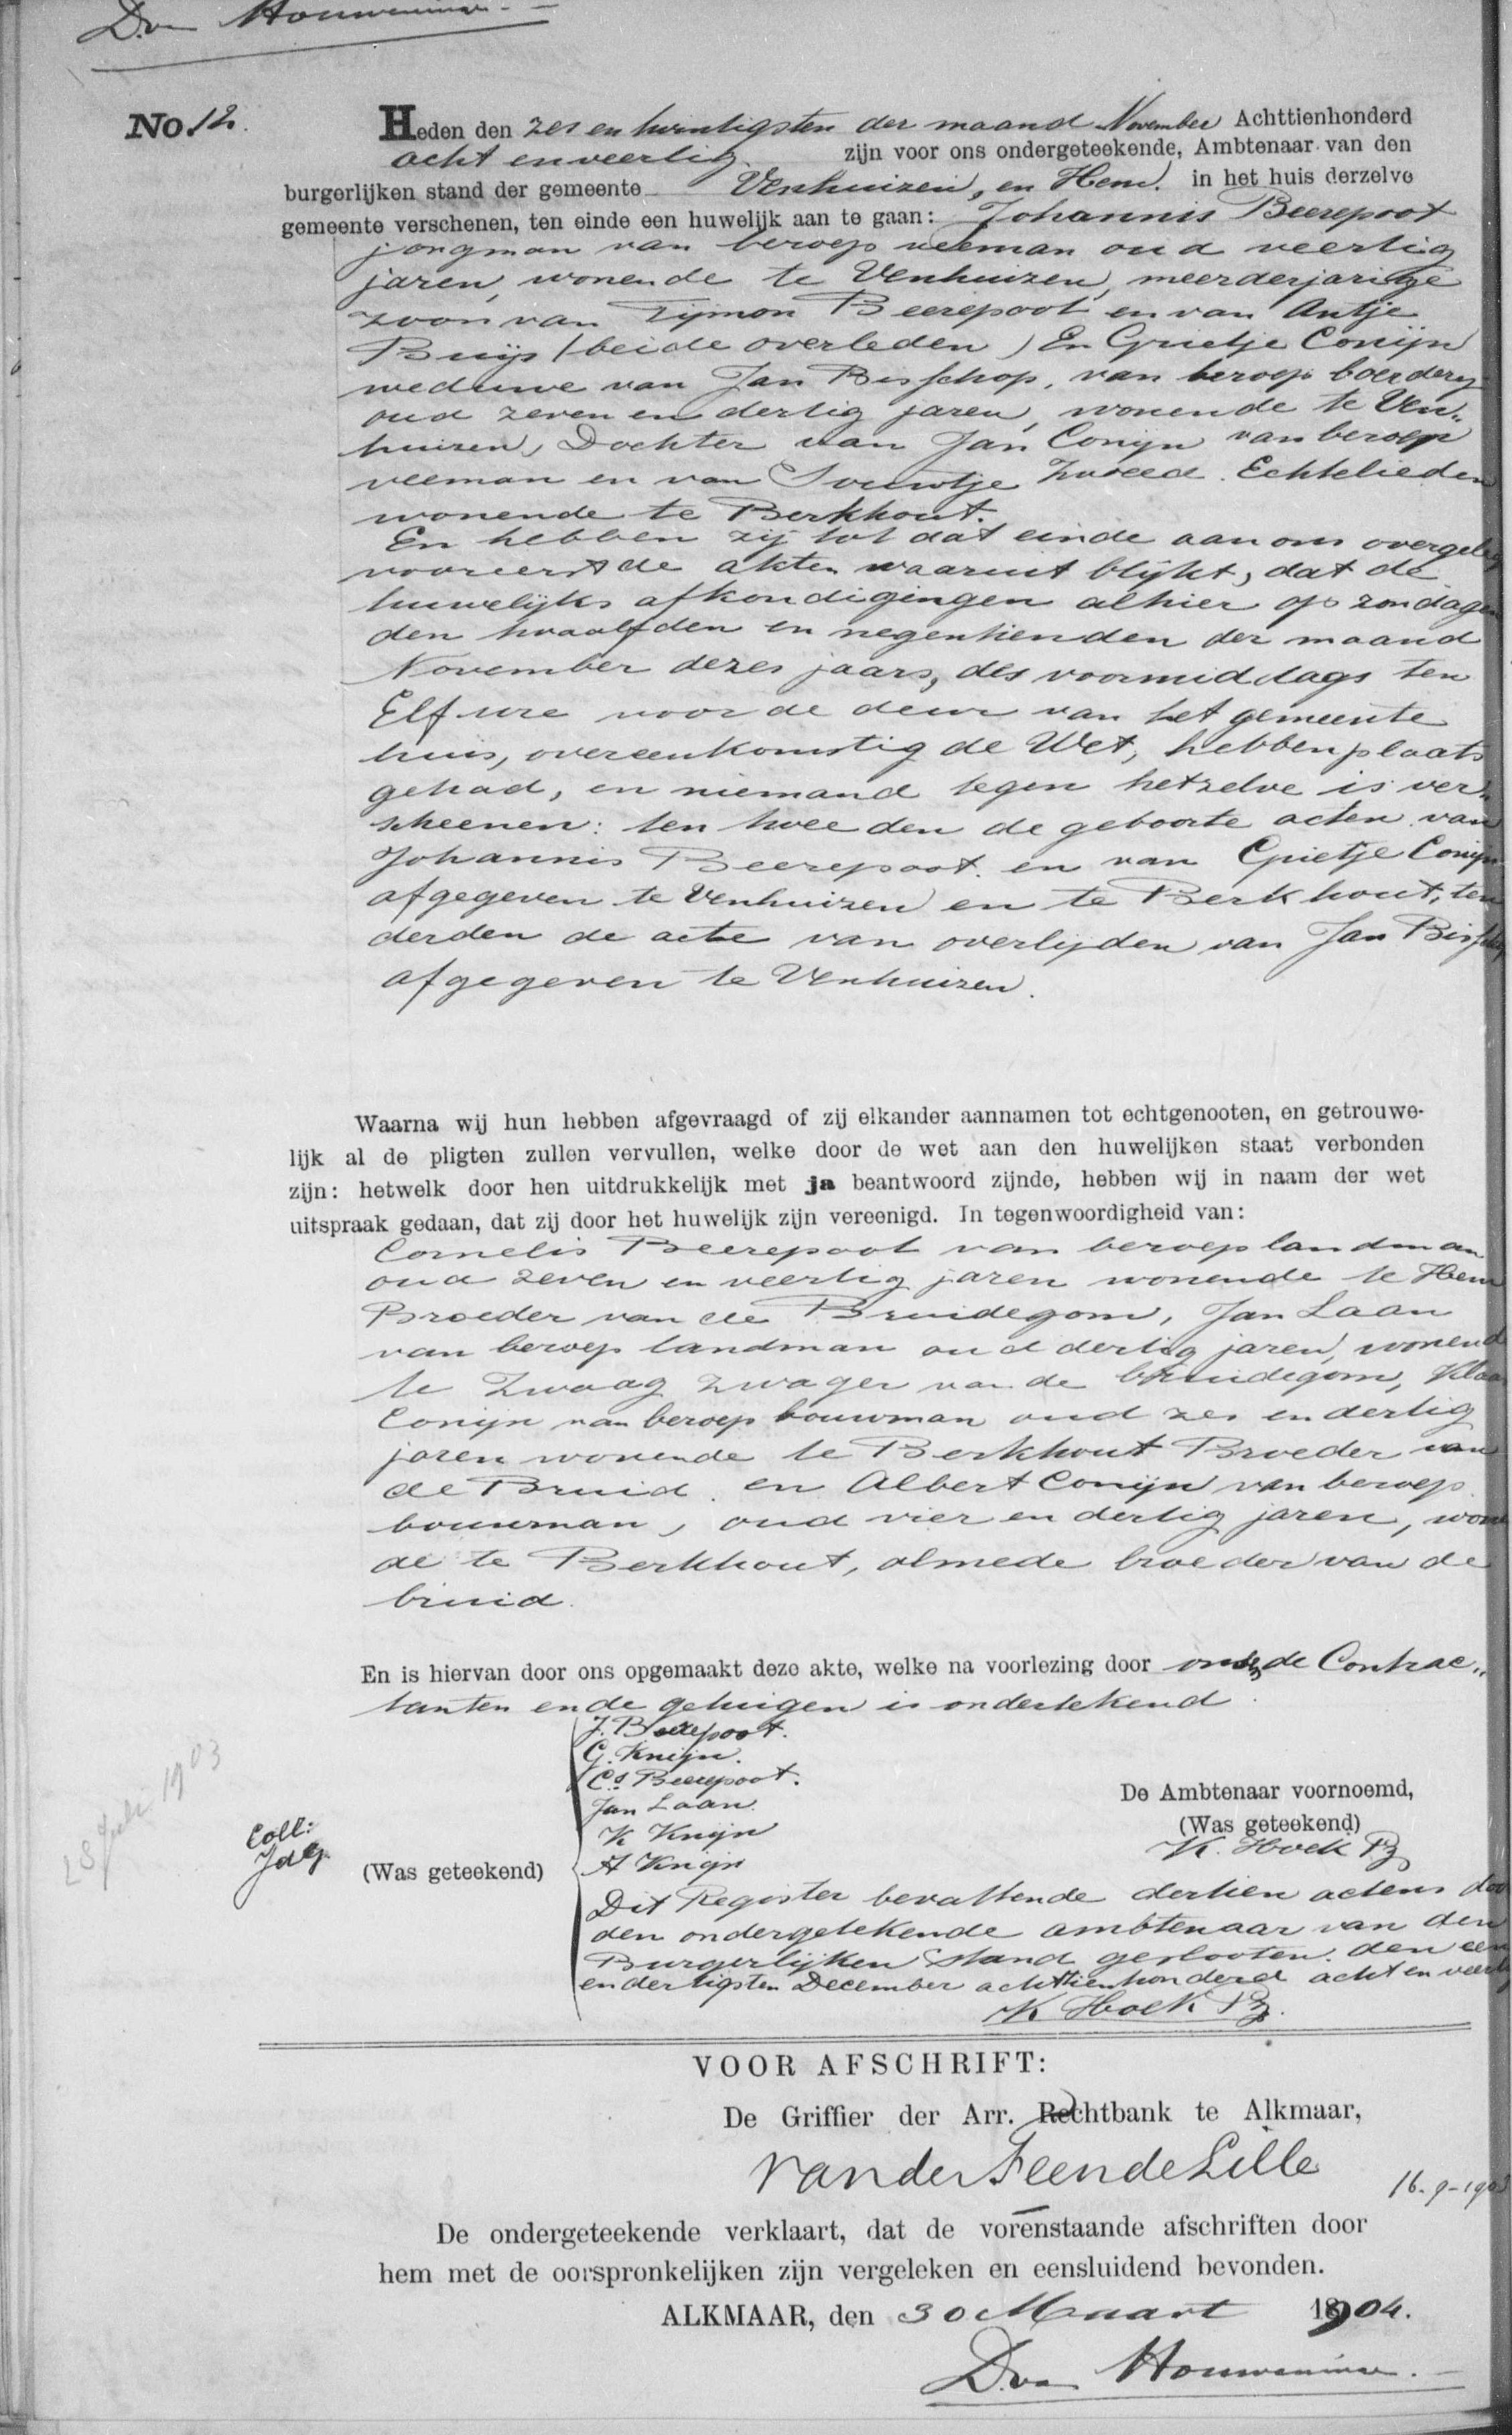 D. v. Houweninge.
No. 12.
Heden den zes en twintigsten der maand November Achttienhonderd
acht en veertig zijn voor ons ondergeteekende, Ambtenaar van den
burgerlijken stand der gemeente Venhuizen, en Hem. in het huis derzelve
gemeente verschenen, ten einde een huwelijk aan te gaan: Johannis Beerepoot
jongman van beroep veeman oud veertig
jaren, wonende te Venhuizen, meerderjarige
zoon van Tijmon Beerepoot en van Antje
Buijs (beide overleden) En Grietje Conijn
weduwe van Jan Bisschop, van beroep boerdery
oud zeven en dertig jaren, wonende te Ven„
huizen, Dochter van Jan Conijn van beroep
veeman en van Trouwtje Zweed. Echtelieden
wonende te Berkhout.
En hebben zij tot dat einde aan ons overgeleg
vooreerst de akten waaruit blijkt, dat de
huwelijks afkondigingen alhier op zondagen
den twaalfden en negentienden der maand
November dezes jaars, des voormiddags ten
Elf ure voor de deur van het gemeente
huis, overeenkomstig de Wet, hebben plaats
gehad, en niemand tegen hetzelve is ver„
scheenen: ten tweeden de geboorte acten van
Johannis Beerepoot en van Grietje Conijn
afgegeven te Venhuizen en te Berkhout, ten
derden de acte van overlijden van Jan Bisschop
afgegeven te Venhuizen.
Waarna wij hun hebben afgevraagd of zij elkander aannamen tot echtgenooten, en getrouwe-
lijk al de pligten zullen vervullen, welke door de wet aan den huwelijken staat verbonden
zijn: hetwelk door hen uitdrukkelijk met ja beantwoord zijnde, hebben wij in naam der wet
uitspraak gedaan, dat zij door het huwelijk zijn vereenigd. In tegenwoordigheid van:
Cornelis Beerepoot van beroep landman
oud zeven en veertig jaren wonende te Hem
Broeder van de Bruidegom, Jan Laan
van beroep landman oud dertig jaren, wonend
te Zwaag zwager van de bruidegom, Klaas
Conijn van beroep bouwman oud zes en dertig
jaren wonende te Berkhout Broeder van
de Bruid. en Albert Conijn van beroep
bouwman, oud vier en dertig jaren, wonen
de te Berkhout, almede broeder van de
bruid.
En is hiervan door ons opgemaakt deze akte, welke na voorlezing door ons, de Contrac„
tanten en de getuigen is ondertekend.
J. Beerepoot.
G. Knijn.
Cs Beerepoot.
Jan Laan.
K Knijn
(Was geteekend) A Knijn
28 Juli 1903
Coll:
JdG
De Ambtenaar voornoemd,
(Was geteekend)
K. Hoek Pz
Dit Register bevattende dertien actens door
den ondergetekende ambtenaar van den
Burgerlijken Stand geslooten. den een
en dertigsten December achttienhonderd acht en veertig
K Hoek Pz.
VOOR AFSCHRIFT:
De Griffier der Arr. Rechtbank te Alkmaar,
van der Feen de Lille
16-9-1903
De ondergeteekende verklaart, dat de vorenstaande afschriften door
hem met de oorspronkelijken zijn vergeleken en eensluidend bevonden.
ALKMAAR, den 30 Maart 1904.
D. v. Houweninge.